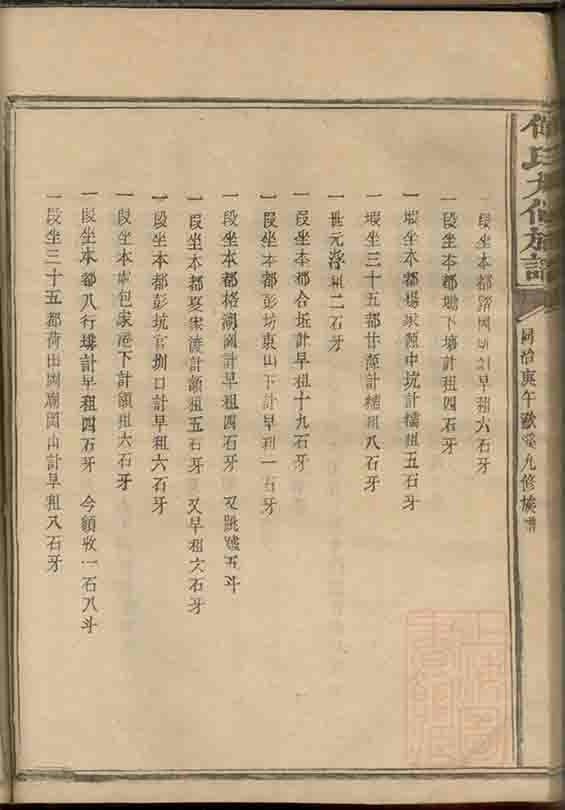 氏大修族譜
同治庚午敦睦堂九修族譜
一段坐本都路岡坵計早租六石牙
一段坐本都塘下壋計租四石牙
一塅坐本都楊家源中坑計糯租五石牙
一塅坐三十五都廿源計糯租八石牙
一世元浮租二石牙
一段坐本都合坵計早租十九石牙
一段坐本都彭坊東山下計早租一石牙
一段坐本都格湖圍計早租四石牙 又跳壋五斗
一段坐本都夏家渡計額租五石牙 又早租六石牙
一段坐本都彭坑官圳口計早租六石牙
一段坐本都包家港下計額租六石牙
一段坐本都八行壋計早租四石牙 今額收一石八斗
一段坐三十五都荷山岡廟岡山計早租八石牙
上海圖書館藏